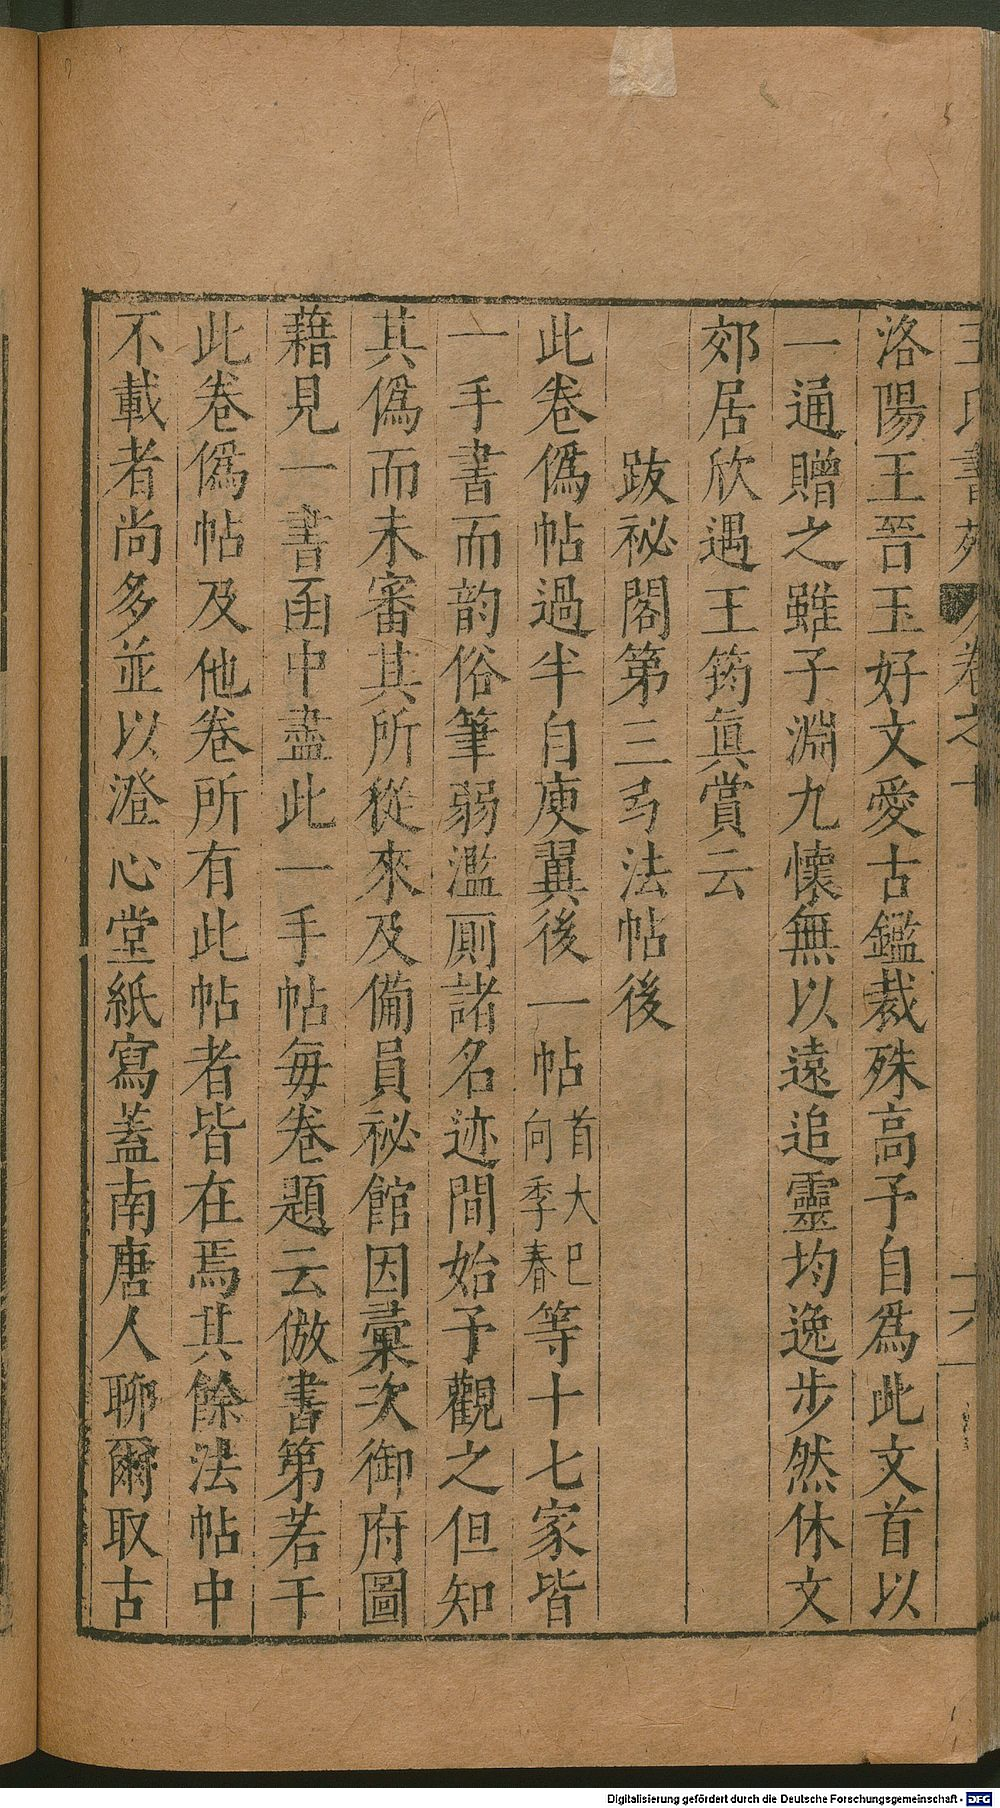 王氏書苑 卷之十 十六
洛陽王晉玉好文愛古鑑裁殊高予自爲此文首以
一通贈之雖子淵九懷無以遠追靈均逸步然休文
郊居欣遇王筠眞賞云
跋祕閣第三弓法帖後
此卷僞帖過半自庾翼後一帖首大巳向季春等十七家皆
一手書而韵俗筆弱濫厠諸名迹間始予觀之但知
其僞而未審其所從來及備員祕館因彙次御府圖
藉見一書函中盡此一手帖每卷題云倣書第若干
此卷僞帖及他卷所有此帖者皆在焉其餘法帖中
不載者尚多並以澄心堂紙寫蓋南唐人聊爾取古
Digitalisierung gefördert durch die Deutsche Forschungsgemeinschaft - DFG